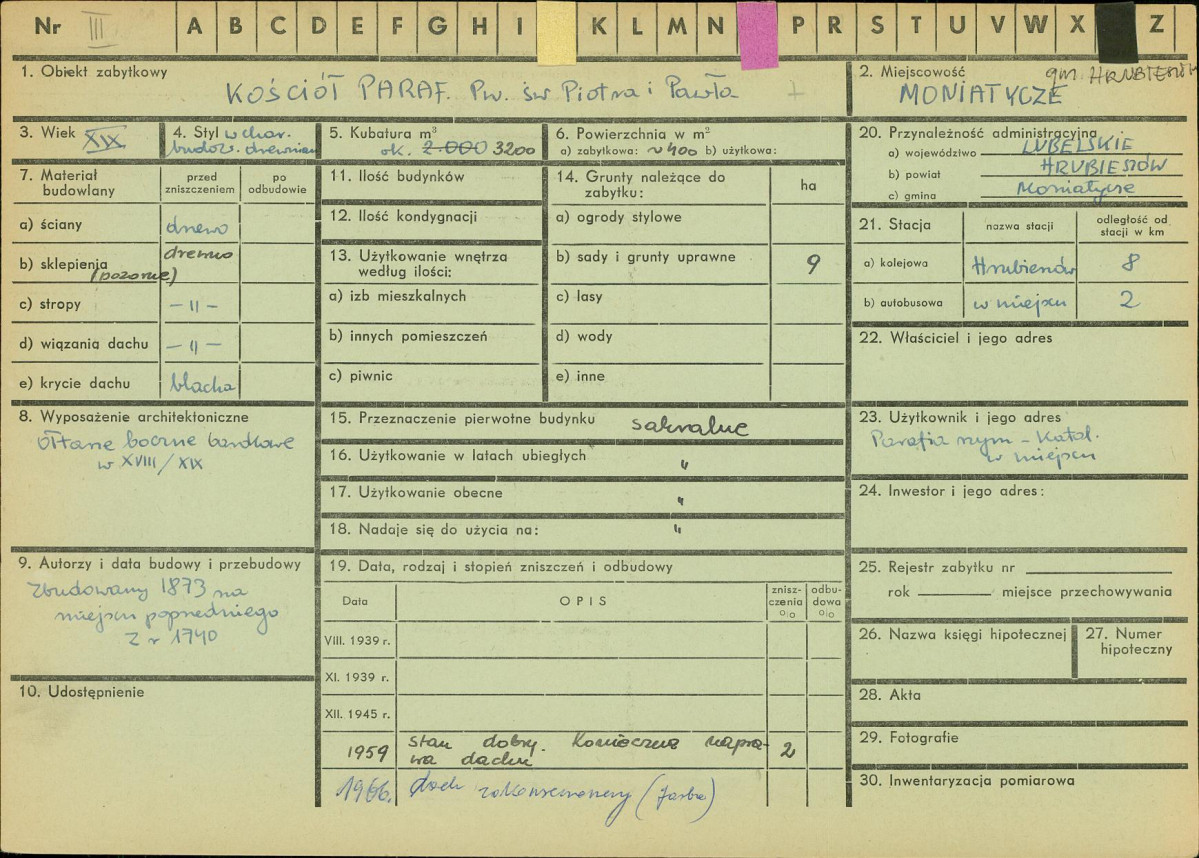 Nr III A B C D E F G H I K L M N P R S T U V W X Z
1. Obiekt zabytkowy
KOŚCIÓŁ PARAF. Pw. św Piotra i Pawła
2. Miejscowość
gm. HRUBIESZÓW
MONIATYCZE
3. Wiek XIX
4. Styl w char.
budow. drewnian
5. Kubatura m³
ok. 2.000 3200
6. Powierzchnia w m²
a) zabytkowa: ~400 b) użytkowa:
7. Materiał budowlany
przed zniszczeniem
po odbudowie
a) ściany drewo
b) sklepienia drewno
(pozorne)
c) stropy — 11 —
d) wiązania dachu — 11 —
e) krycie dachu blacha
8. Wyposażenie architektoniczne
ołtarze boczne barokowe
w XVIII/XIX
9. Autorzy i data budowy i przebudowy
Zbudowany 1873 na
miejscu poprzedniego
z r 1740
10. Udostępnienie
11. Ilość budynków
12. Ilość kondygnacji
13. Użytkowanie wnętrza
według ilości:
a) izb mieszkalnych
b) innych pomieszczeń
c) piwnic
14. Grunty należące do
zabytku:
ha
a) ogrody stylowe
b) sady i grunty uprawne 9
c) lasy
d) wody
e) inne
15. Przeznaczenie pierwotne budynku sakralne
16. Użytkowanie w latach ubiegłych "
17. Użytkowanie obecne "
18. Nadaje się do użycia na: "
19. Data, rodzaj i stopień zniszczeń i odbudowy
Data OPIS
znisz-
czenia
o|o
odbu-
dowa
o|o
VIII. 1939 r.
XI. 1939 r.
XII. 1945 r.
1959 stan dobry. Konieczna napra- 2
wa dachu
1966. dach zakonserwowany (farba)
20. Przynależność administracyjna
a) województwo LUBELSKIE
b) powiat HRUBIESZÓW
c) gmina Moniatycze
21. Stacja
nazwa stacji
odległość od
stacji w km
a) kolejowa Hrubieszów 8
b) autobusowa w miejscu 2
22. Właściciel i jego adres
23. Użytkownik i jego adres
Parafia rzym - Katol.
w miejscu
24. Inwestor i jego adres:
25. Rejestr zabytku nr
rok miejsce przechowywania
26. Nazwa księgi hipotecznej
27. Numer
hipoteczny
28. Akta
29. Fotografie
30. Inwentaryzacja pomiarowa